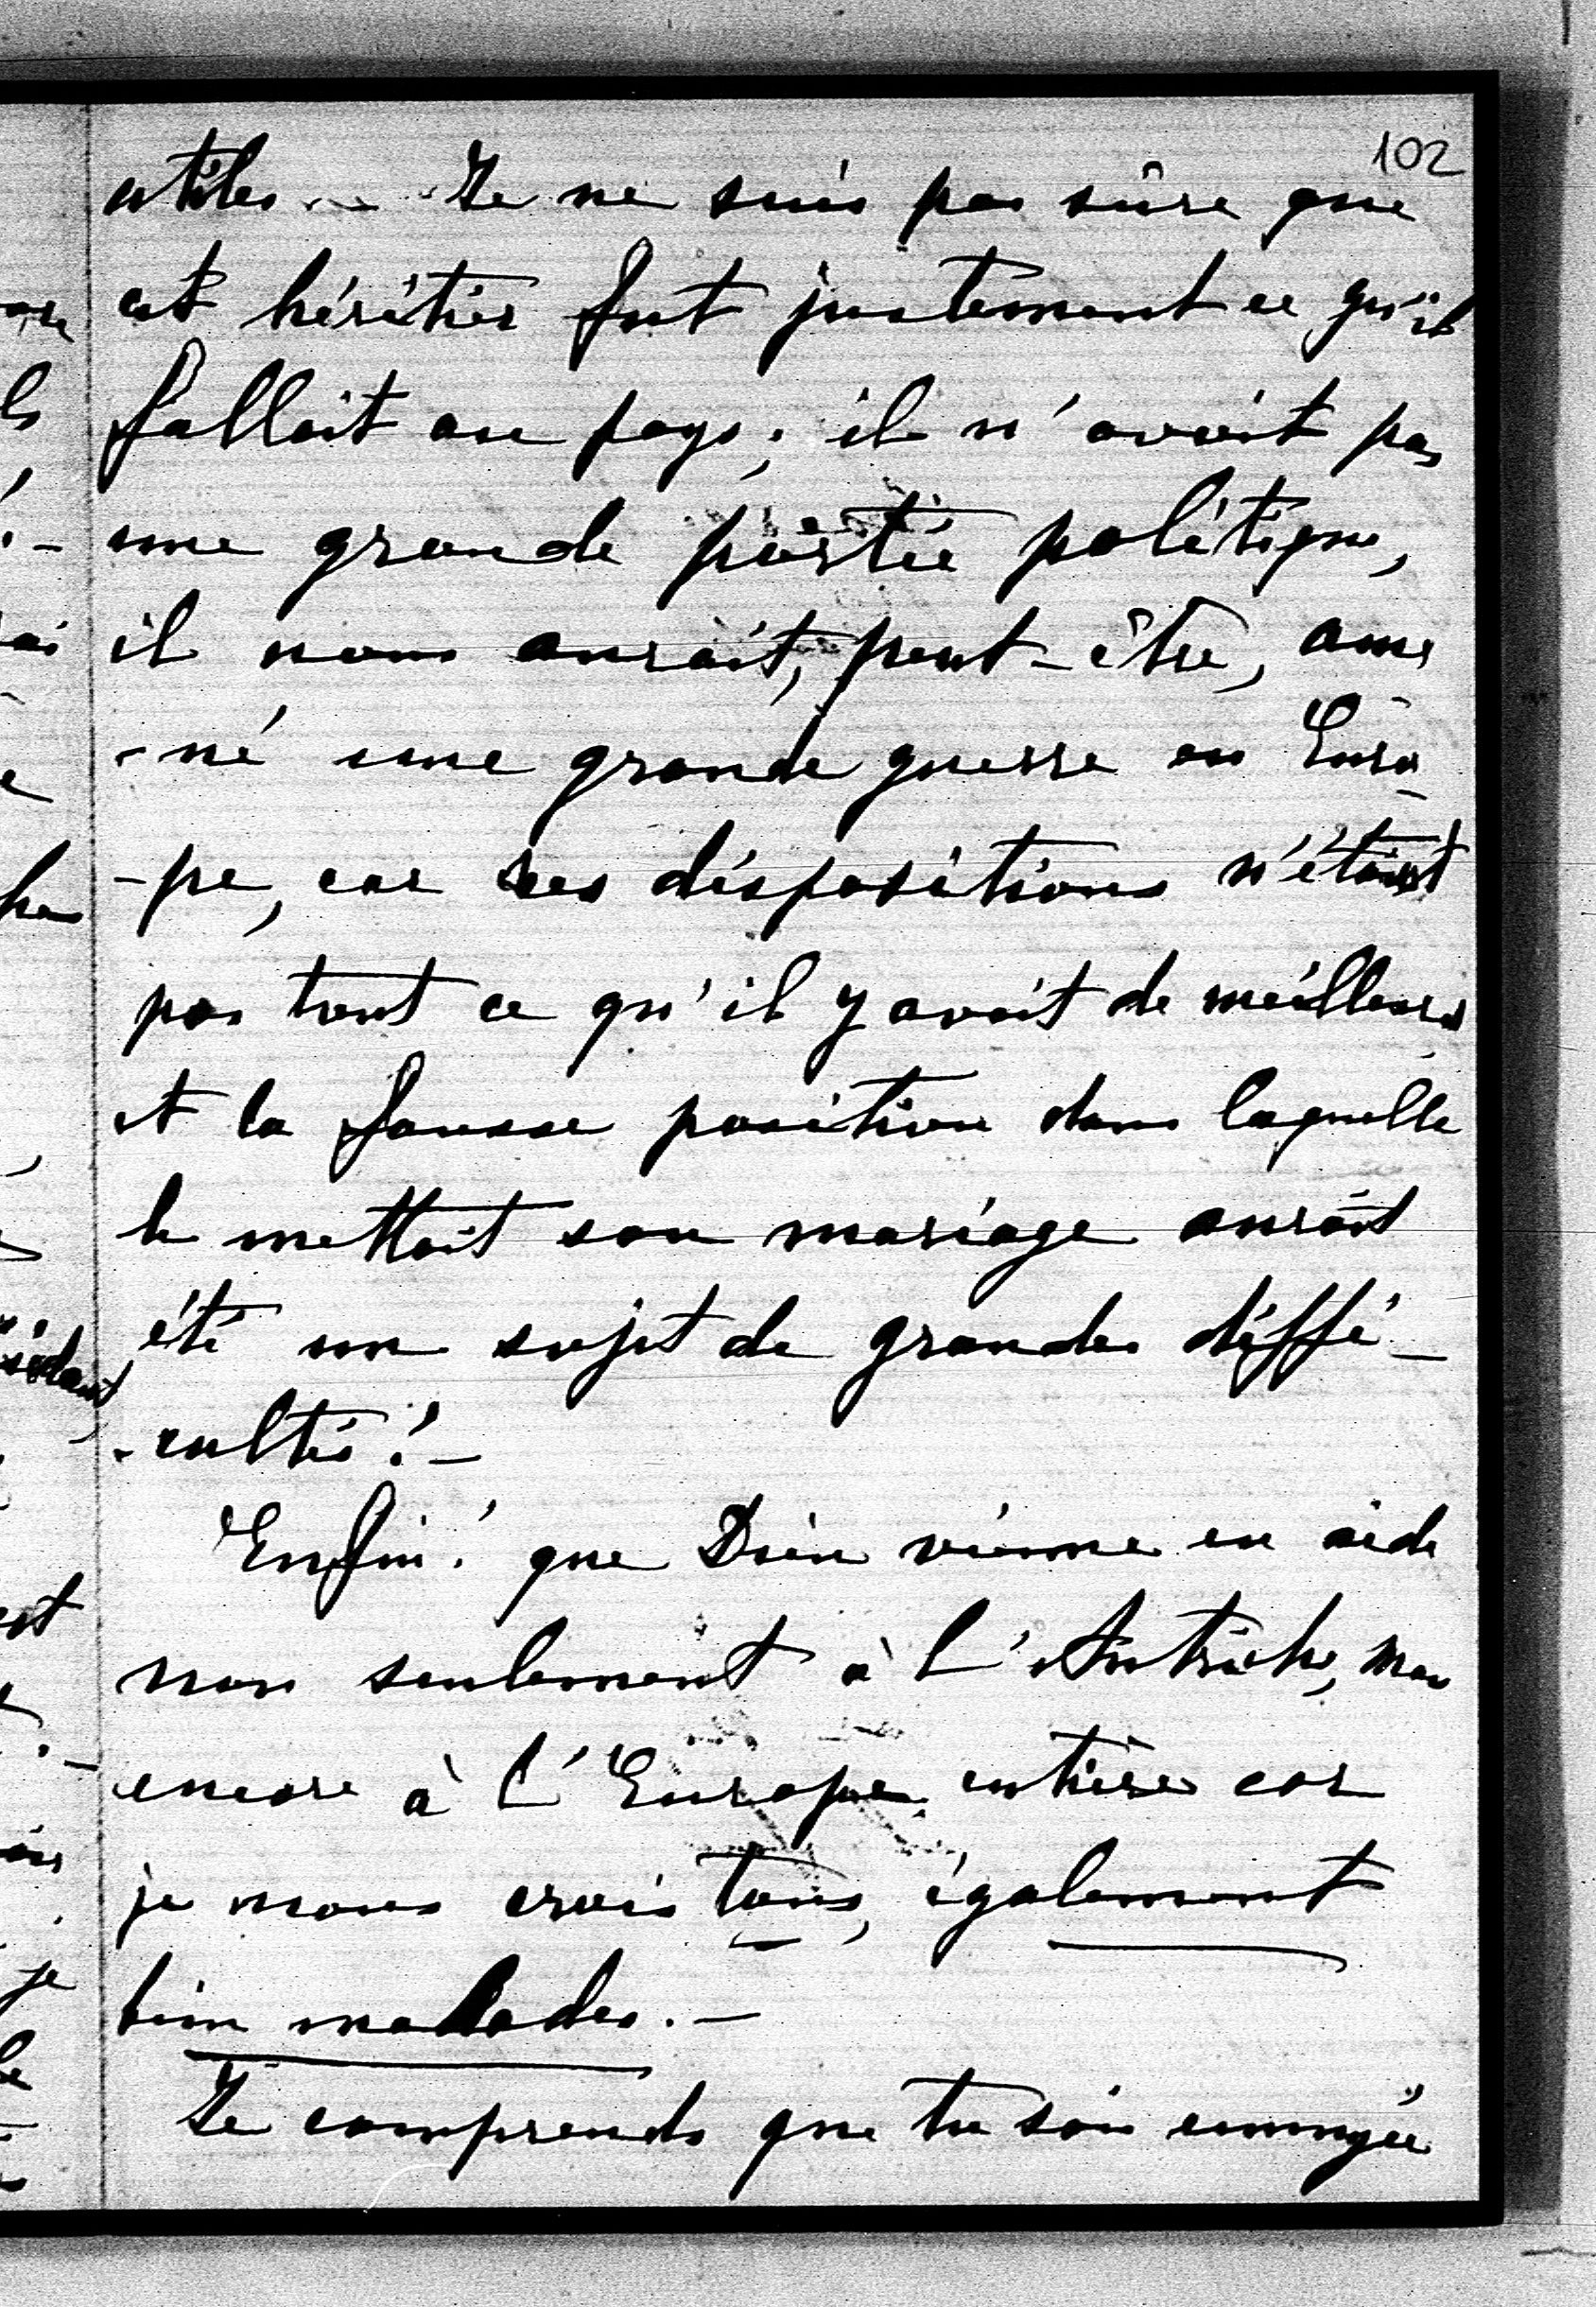 102
utiles... Je ne suis pas sûre que
cet héritier fut justement ce qu'il
fallait au pays; il n'avait pas
une grande portée politique,
il nous aurait, peut-être, ame
-né une grande guerre en Euro
-pe, car ses dispositions n'étaient
pas tout ce qu'il y avait de meilleures
et la fausse position dans laquelle
le mettait son mariage aurait
été un sujet de grandes diffi-
-cultés!-
Enfin! que Dieu vienne en aide
non seulement à l'Autriche, mais
encore à l'Europe entière car
je nous crois tous, également
bien malades.-
Je comprends que tu sois ennuyée